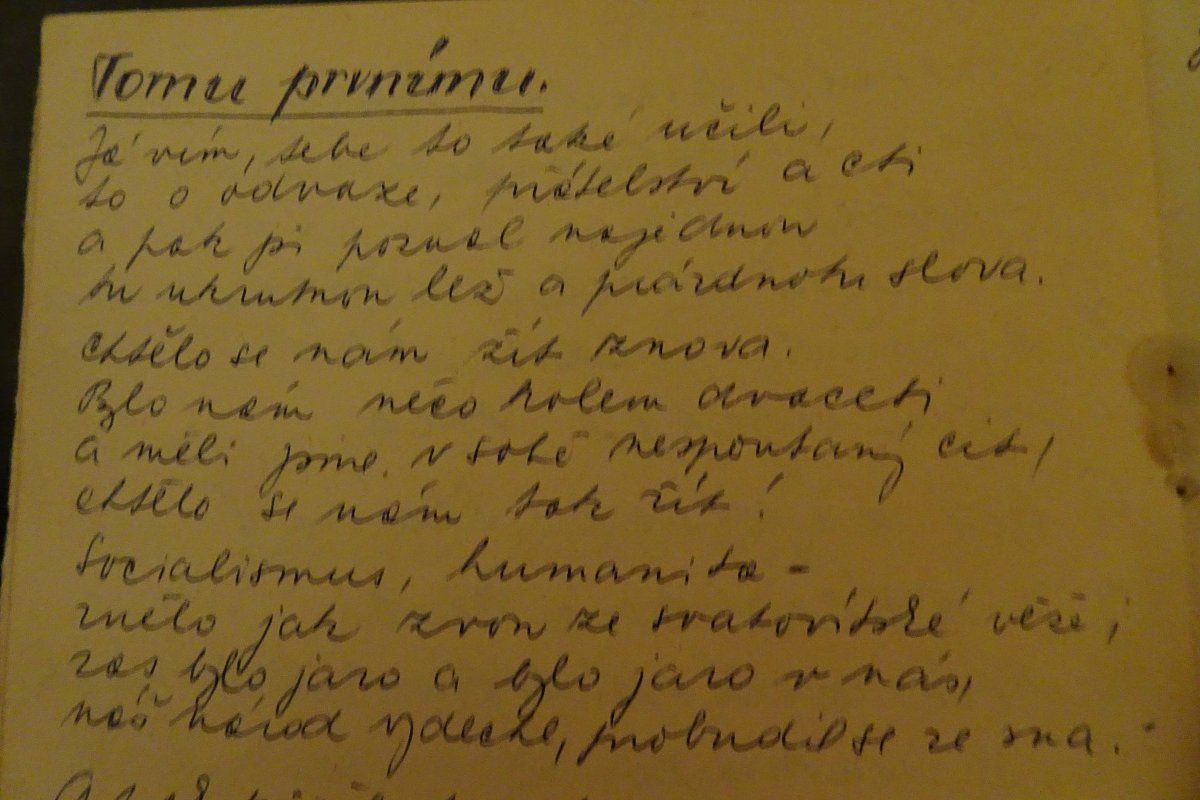 Tomu prvnímu.
Já vím, tebe to také učili,
to o odvaze, přátelství a cti
a pak jsi poznal najednou
tu ukrutnou lež a prázdnotu slova.
Chtělo se nám žít znova.
Bylo nám něco kolem dvaceti
a měli jsme v sobě nespoutaný cit,
chtělo se nám tak žít!
Socialismus, humanita -
znělo jak zvon ze svatovítské věže,
zas bylo jaro a bylo jaro v nás,
náš národ vydechl, probudil se ze sna.